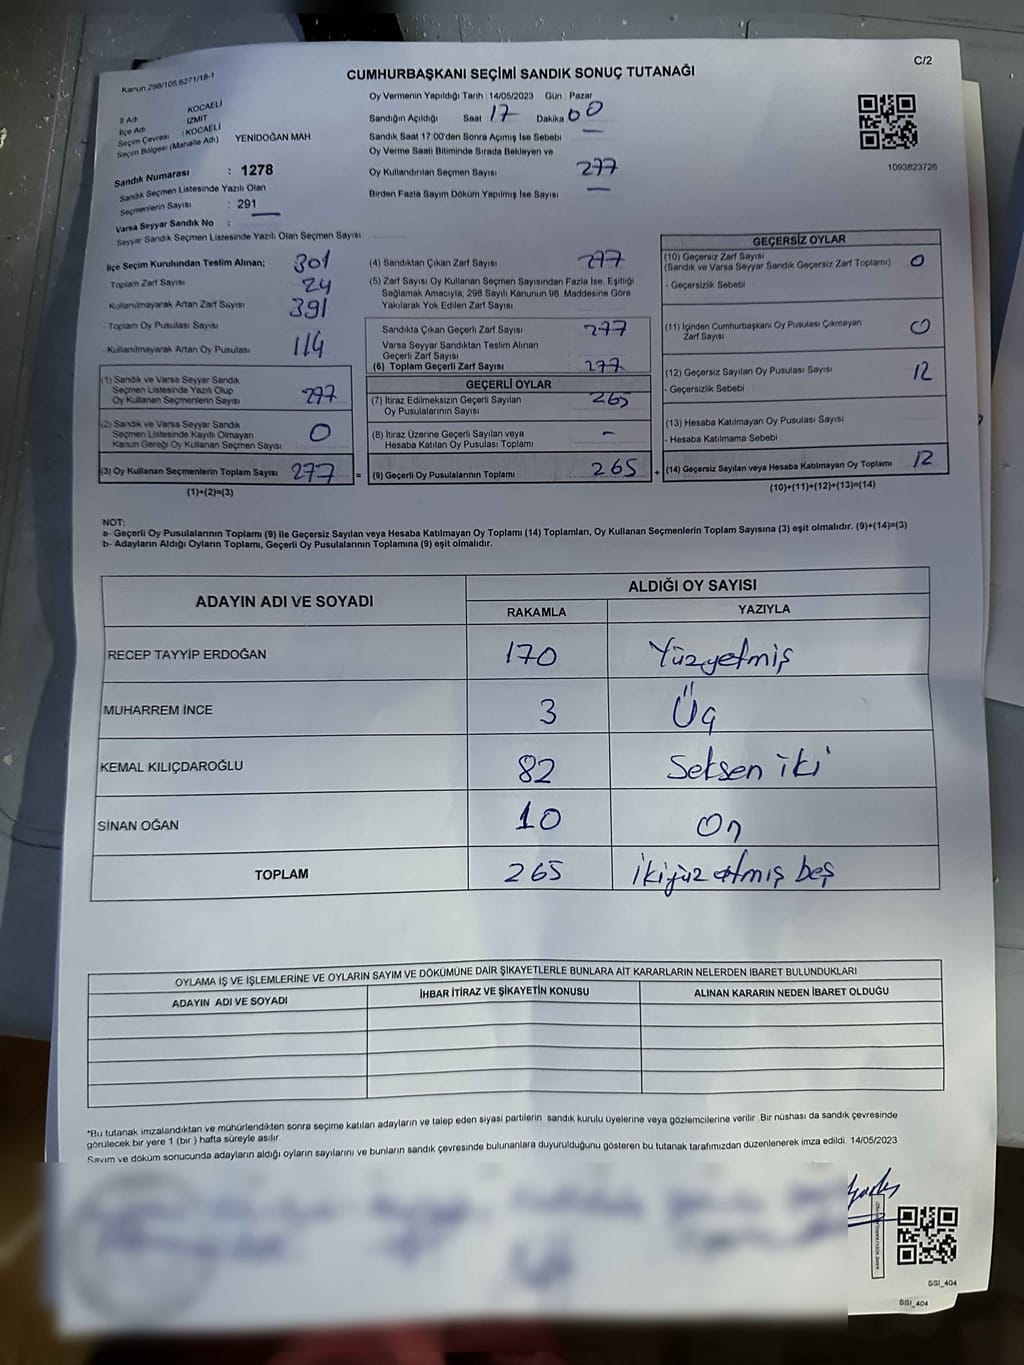 Kanun 298/105,6271/18-1
CUMHURBAŞKANI SEÇİMİ SANDIK SONUÇ TUTANAĞI
C/2
İl Adı KOCAELİ
İlçe Adı İZMİT
Seçim Çevresi : KOCAELİ
Seçim Bölgesi (Mahalle Adı) YENİDOĞAN MAH
Sandık Numarası : 1278
Sandık Seçmen Listesinde Yazılı Olan
Seçmenlerin Sayısı : 291
Varsa Seyyar Sandık No :
Seyyar Sandık Seçmen Listesinde Yazılı Olan Seçmen Sayısı
Oy Vermenin Yapıldığı Tarih : 14/05/2023 Gün : Pazar
Sandığın Açıldığı Saat 17 Dakika 00
Sandık Saat 17:00'den Sonra Açımış İse Sebebi —
Oy Verme Saati Bitiminde Sırada Bekleyen ve
Oy Kullandırılan Seçmen Sayısı 277
Birden Fazla Sayım Döküm Yapılmış İse Sayısı —
1093823726
İlçe Seçim Kurulundan Teslim Alınan;
Toplam Zarf Sayısı 301
- Kullanılmayarak Artan Zarf Sayısı 24
- Toplam Oy Pusulası Sayısı 391
- Kullanılmayarak Artan Oy Pusulası 114
(1) Sandık ve Varsa Seyyar Sandık
Seçmen Listesinde Yazılı Olup
Oy Kullanan Seçmenlerin Sayısı 277
(2) Sandık ve Varsa Seyyar Sandık
Seçmen Listesinde Kayıtlı Olmayan
Kanun Gereği Oy Kullanan Seçmen Sayısı 0
(3) Oy Kullanan Seçmenlerin Toplam Sayısı 277 =
(1)+(2)=(3)
(4) Sandıktan Çıkan Zarf Sayısı 277
(5) Zarf Sayısı Oy Kullanan Seçmen Sayısından Fazla İse, Eşitliği
Sağlamak Amacıyla, 298 Sayılı Kanunun 98. Maddesine Göre
Yakılarak Yok Edilen Zarf Sayısı
Sandıkta Çıkan Geçerli Zarf Sayısı 277
Varsa Seyyar Sandıktan Teslim Alınan
Geçerli Zarf Sayısı
(6) Toplam Geçerli Zarf Sayısı 277
GEÇERLİ OYLAR
(7) İtiraz Edilmeksizin Geçerli Sayılan
Oy Pusulalarının Sayısı 265
(8) İtiraz Üzerine Geçerli Sayılan veya
Hesaba Katılan Oy Pusulası Toplamı -
(9) Geçerli Oy Pusulalarının Toplamı 265 +
GEÇERSİZ OYLAR
(10) Geçersiz Zarf Sayısı
(Sandık ve Varsa Seyyar Sandık Geçersiz Zarf Toplamı) 0
- Geçersizlik Sebebi
(11) İçinden Cumhurbaşkanı Oy Pusulası Çıkmayan
Zarf Sayısı 0
(12) Geçersiz Sayılan Oy Pusulası Sayısı 12
- Geçersizlik Sebebi
(13) Hesaba Katılmayan Oy Pusulası Sayısı
- Hesaba Katılmama Sebebi
(14) Geçersiz Sayılan veya Hesaba Katılmayan Oy Toplamı 12
(10)+(11)+(12)+(13)=(14)
NOT:
a- Geçerli Oy Pusulalarının Toplamı (9) ile Geçersiz Sayılan veya Hesaba Katılmayan Oy Toplamı (14) Toplamları, Oy Kullanan Seçmenlerin Toplam Sayısına (3) eşit olmalıdır. (9)+(14)=(3)
b- Adayların Aldığı Oyların Toplamı, Geçerli Oy Pusulalarının Toplamına (9) eşit olmalıdır.
ADAYIN ADI VE SOYADI ALDIĞI OY SAYISI
RAKAMLA YAZIYLA
RECEP TAYYİP ERDOĞAN 170 Yüzyetmiş
MUHARREM İNCE 3 Üç
KEMAL KILIÇDAROĞLU 82 Seksen iki
SİNAN OĞAN 10 On
TOPLAM 265 İkiyüz atmış beş
OYLAMA İŞ VE İŞLEMLERİNE VE OYLARIN SAYIM VE DÖKÜMÜNE DAİR ŞİKAYETLERLE BUNLARA AİT KARARLARIN NELERDEN İBARET BULUNDUKLARI
ADAYIN ADI VE SOYADI İHBAR İTİRAZ VE ŞİKAYETİN KONUSU ALINAN KARARIN NEDEN İBARET OLDUĞU
*Bu tutanak imzalandıktan ve mühürlendikten sonra seçime katılan adayların ve talep eden siyasi partilerin sandık kurulu üyelerine veya gözlemcilerine verilir .Bir nüshası da sandık çevresinde
görülecek bir yere 1 (bir ) hafta süreyle asılır.
Sayım ve döküm sonucunda adayların aldığı oyların sayılarını ve bunların sandık çevresinde bulunanlara duyurulduğunu gösteren bu tutanak tarafımızdan düzenlenerek imza edildi. 14/05/2023
SSI_404
SSI_404